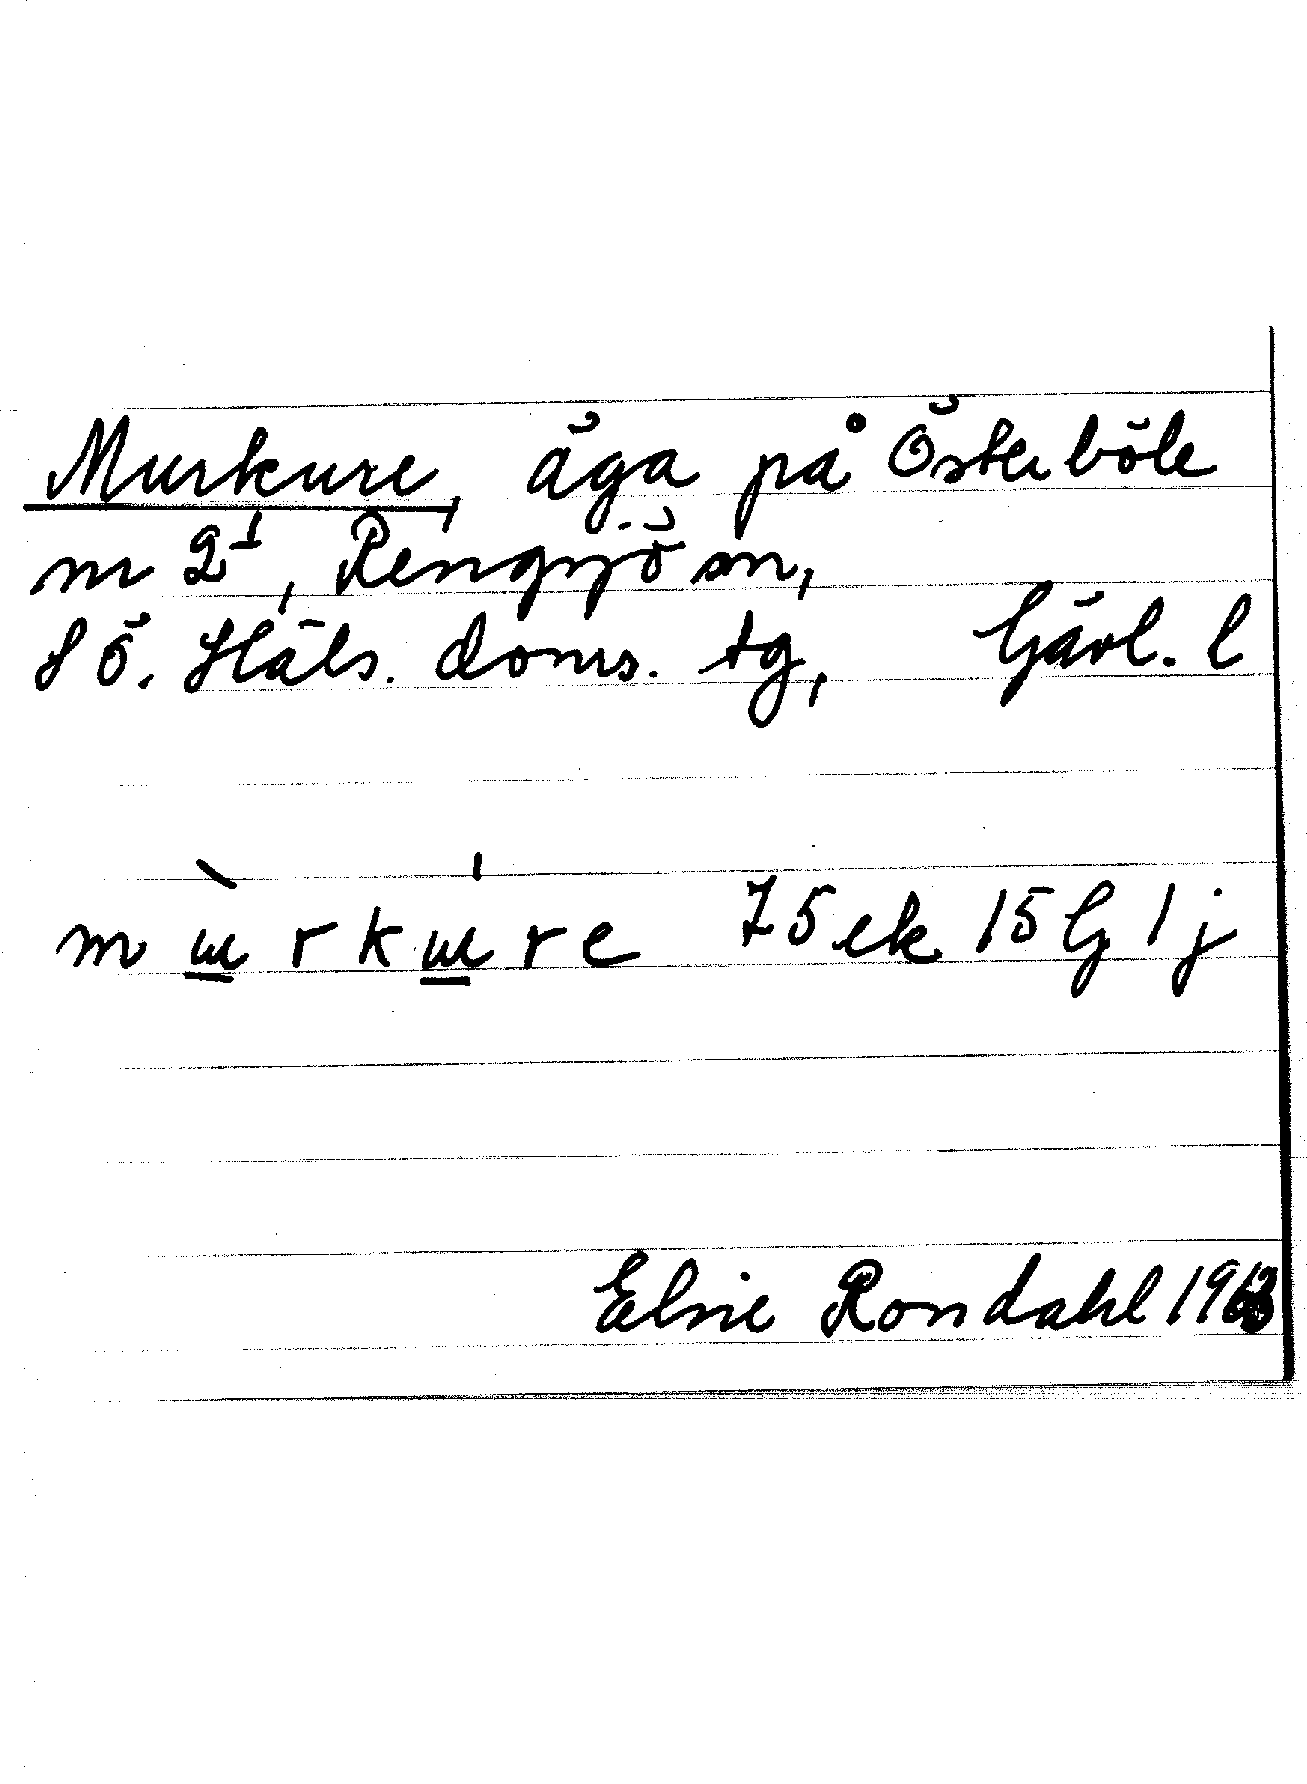 Murkure, äga på Österböle
m 2¹, Rengsjö sn,
S ö. Häls. doms. tg, Gävl. l
m ɯ̲̀ r k ɯ̲́ r e 75 ek 15 G 1 j
Elsie Rondahl